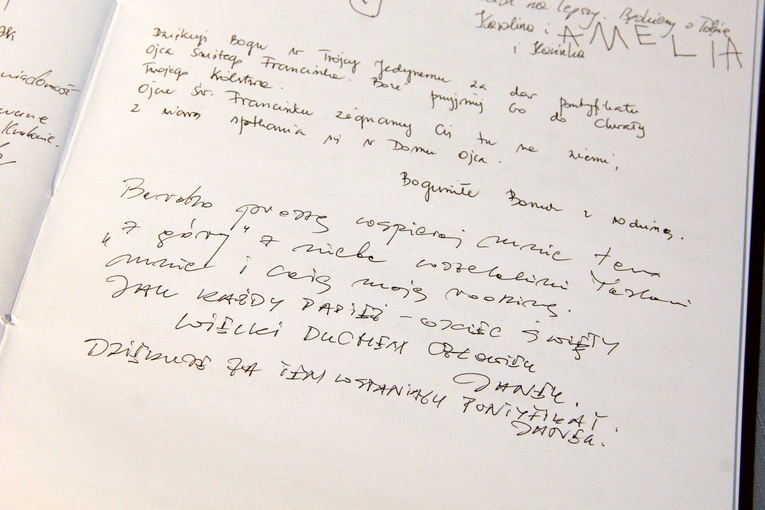 na lepszy. Będziemy o Tobie
Karolina i AMELIA
i Kasieńka
Dziękuję Bogu w Trójcy Jedynemu za dar pontyfikatu
Ojca Świętego Franciszka. Boże przyjmij Go do Chwały
Twojego Królestwa.
Ojcze Św. Franciszku żegnamy Cię tu na ziemi,
z wiarą spotkania się w Domu Ojca.
Bogumiła z rodziną.
Bardzo proszę wspieraj mnie teraz
"z góry" z nieba wszelakimi łaskami
mnie i całą moją rodzinę.
JAK KAŻDY PAPIEŻ - OJCIEC ŚWIĘTY
WIELKI DUCHEM CZŁOWIEK
JANEK.
DZIĘKUJĘ ZA TEN WSPANIAŁY PONTYFIKAT.